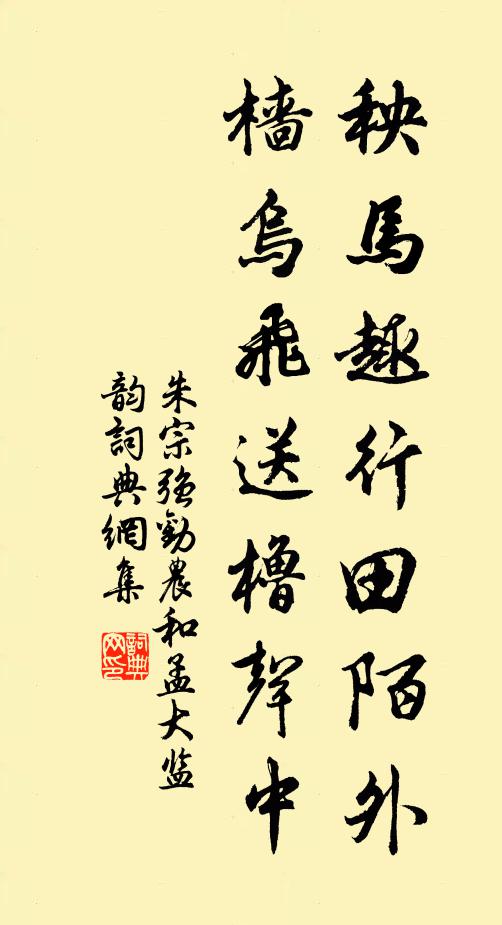 秧馬趣行田陌外
檣烏飛送櫓聲中
朱宗強勸農和孟大监
韵詞典網集
詞典网印